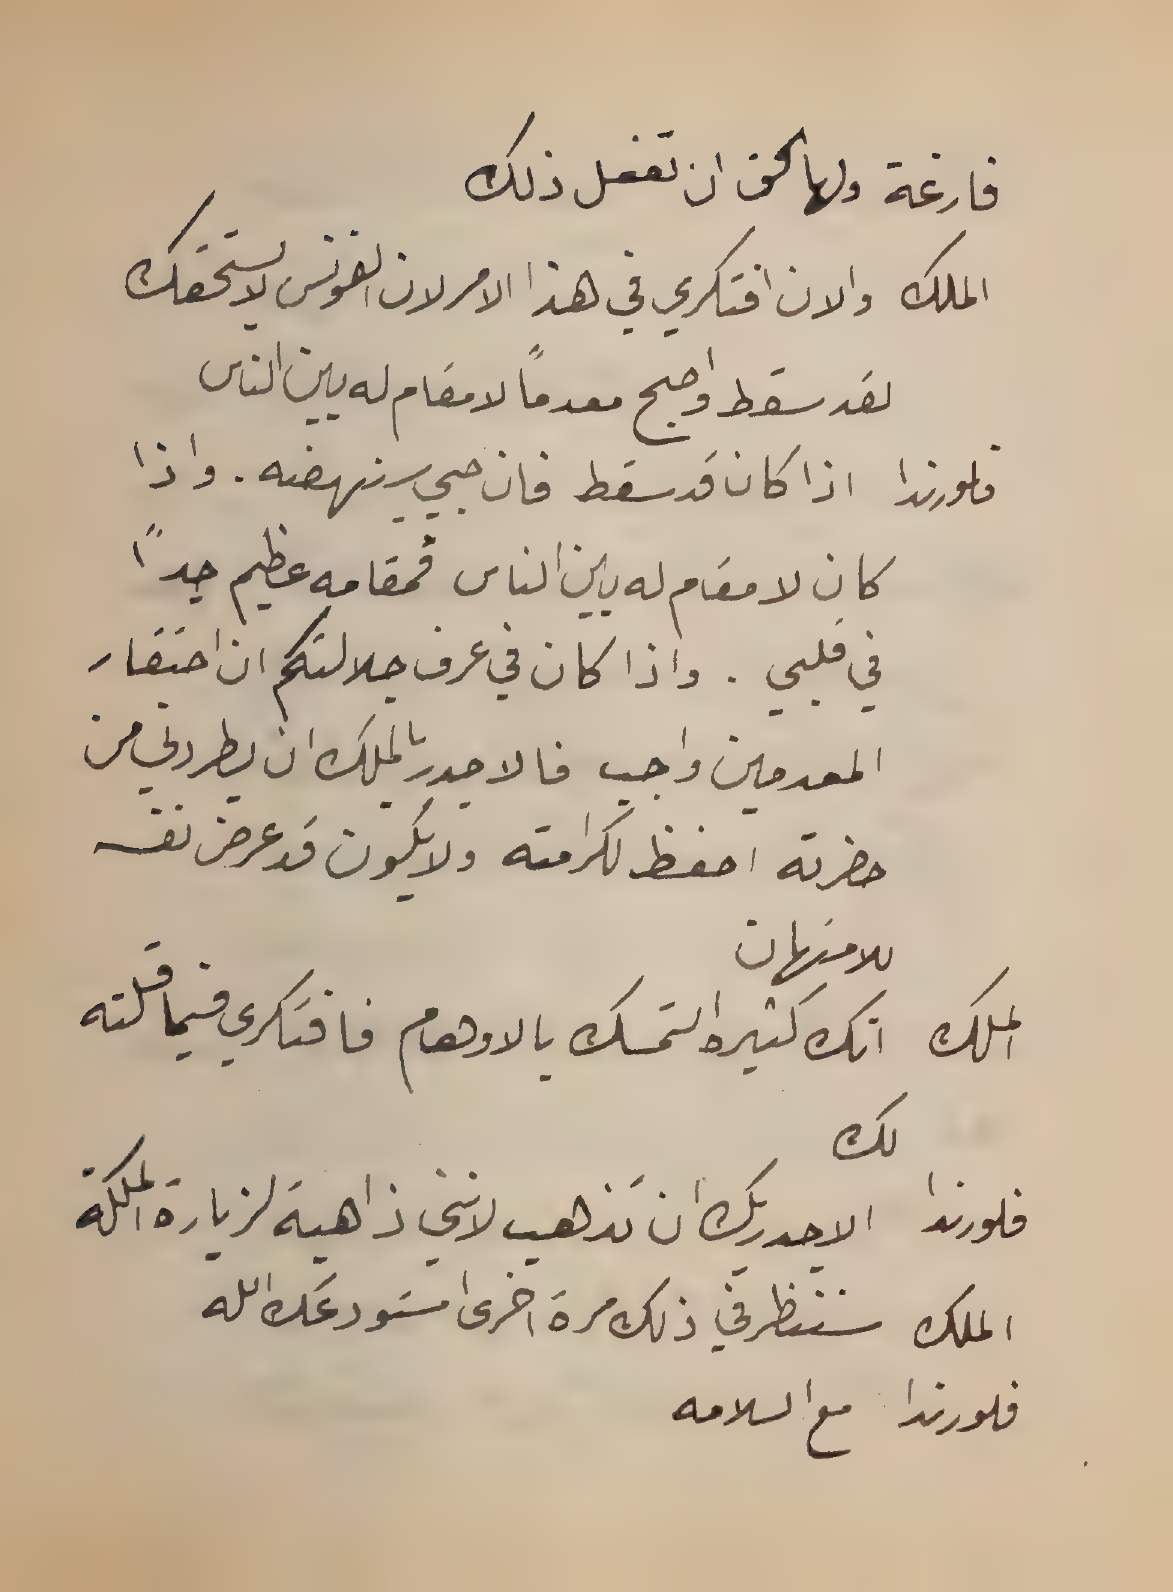 فارغة ولها الحق ان تفعل ذلك
الملك والان افتكري في هذا الامر لان الفونس لا يستحقك
لقد سقط واصبح معدماً لا مقام له بين الناس
فلورندا اذا كان قد سقط فان حبي سينهضه . واذا
كان لا مقام له بين الناس فمقامه عظيم جداً
في قلبي . واذا كان في عرف جلالتكم ان احتقار
المعدمين واجب فالاجدر بالملك ان يطردني من
حضرته احفظ لكرامته ولا يكون قد عرض نفسه
للامتهان
الملك انك كثيرة التمسك بالاوهام فافتكري فيما قلته
لك
فلورندا الاجدر بك ان تذهب لانني ذاهبة لزيارة الملكة
الملك سننظر في ذلك مرة اخرى استودعك الله
فلورندا مع السلامه